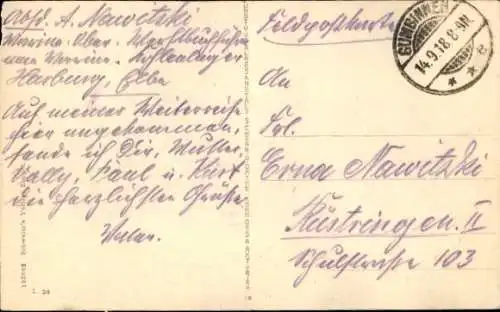 Absd. A. Nawitzki
Marine-Ober-
Marine-Kohlenlager
Harburg, Elbe
Auf meiner Weiterreise
hier angekommen,
sende ich Dir, Mutter,
Wally, Paul u. Kurt
die herzlichsten Grüße.
Vater.
Feldpostkarte
GUMBINNEN
14.9.18. 8-9N.
An
Frl.
Erna Nawitzki
Rüstringen II
Schulstrasse 103